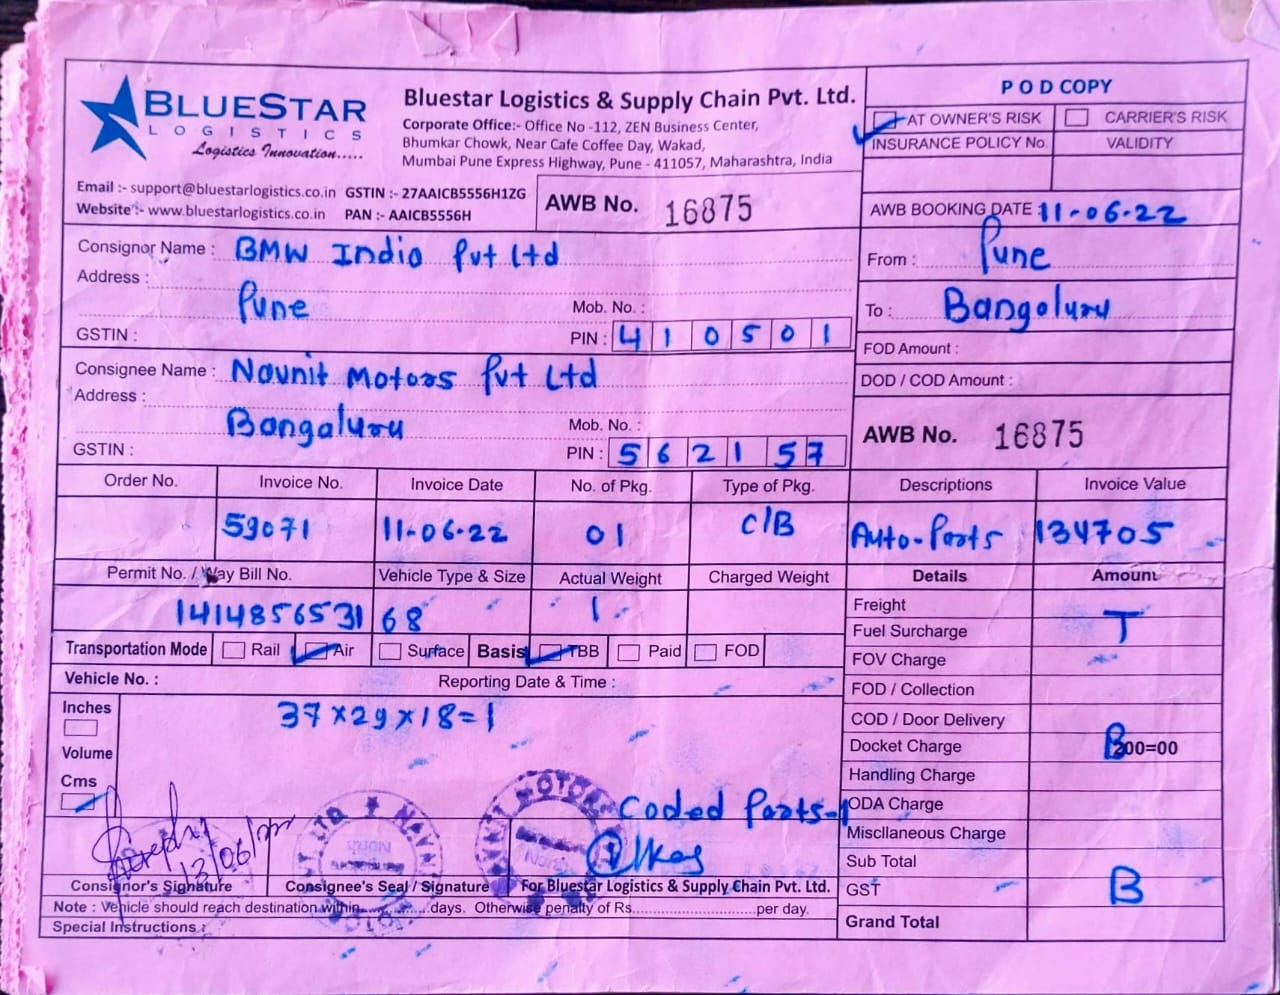 BLUESTAR
LOGISTICS
Logistics Innovation.....
Bluestar Logistics & Supply Chain Pvt. Ltd.
Corporate Office:- Office No -112, ZEN Business Center,
Bhumkar Chowk, Near Cafe Coffee Day, Wakad,
Mumbai Pune Express Highway, Pune - 411057, Maharashtra, India
Email :- support@bluestarlogistics.co.in GSTIN :- 27AAICB5556H1ZG
Website :- www.bluestarlogistics.co.in PAN :- AAICB5556H
AWB No. 16875
P O D COPY
AT OWNER'S RISK CARRIER'S RISK
INSURANCE POLICY No. VALIDITY
AWB BOOKING DATE : 11-06-22
From : Pune
To : Bangaluru
FOD Amount :
DOD / COD Amount :
AWB No. 16875
Consignor Name : BMW India Pvt Ltd
Address :
Pune Mob. No. :
GSTIN : PIN : 410501
Consignee Name : Navnit Motors Pvt Ltd
Address :
Bangaluru Mob. No. :
GSTIN : PIN : 562157
Order No. Invoice No. Invoice Date No. of Pkg. Type of Pkg. Descriptions Invoice Value
59071 11-06-22 01 C/B Auto-Parts 134705
Permit No. / Way Bill No. Vehicle Type & Size Actual Weight Charged Weight Details Amount
141485653168 1
Freight
Fuel Surcharge T
FOV Charge
FOD / Collection
COD / Door Delivery
Docket Charge B 200=00
Handling Charge
ODA Charge
Miscllaneous Charge
Sub Total
GST B
Grand Total
Transportation Mode Rail Air Surface Basis TBB Paid FOD
Vehicle No. : Reporting Date & Time :
Inches
Volume
Cms
37×29×18=1
Coded Parts-1
13/06/22
Consignor's Signature Consignee's Seal / Signature For Bluestar Logistics & Supply Chain Pvt. Ltd.
Note : Vehicle should reach destination within..............days. Otherwise penalty of Rs..............................per day.
Special Instructions :